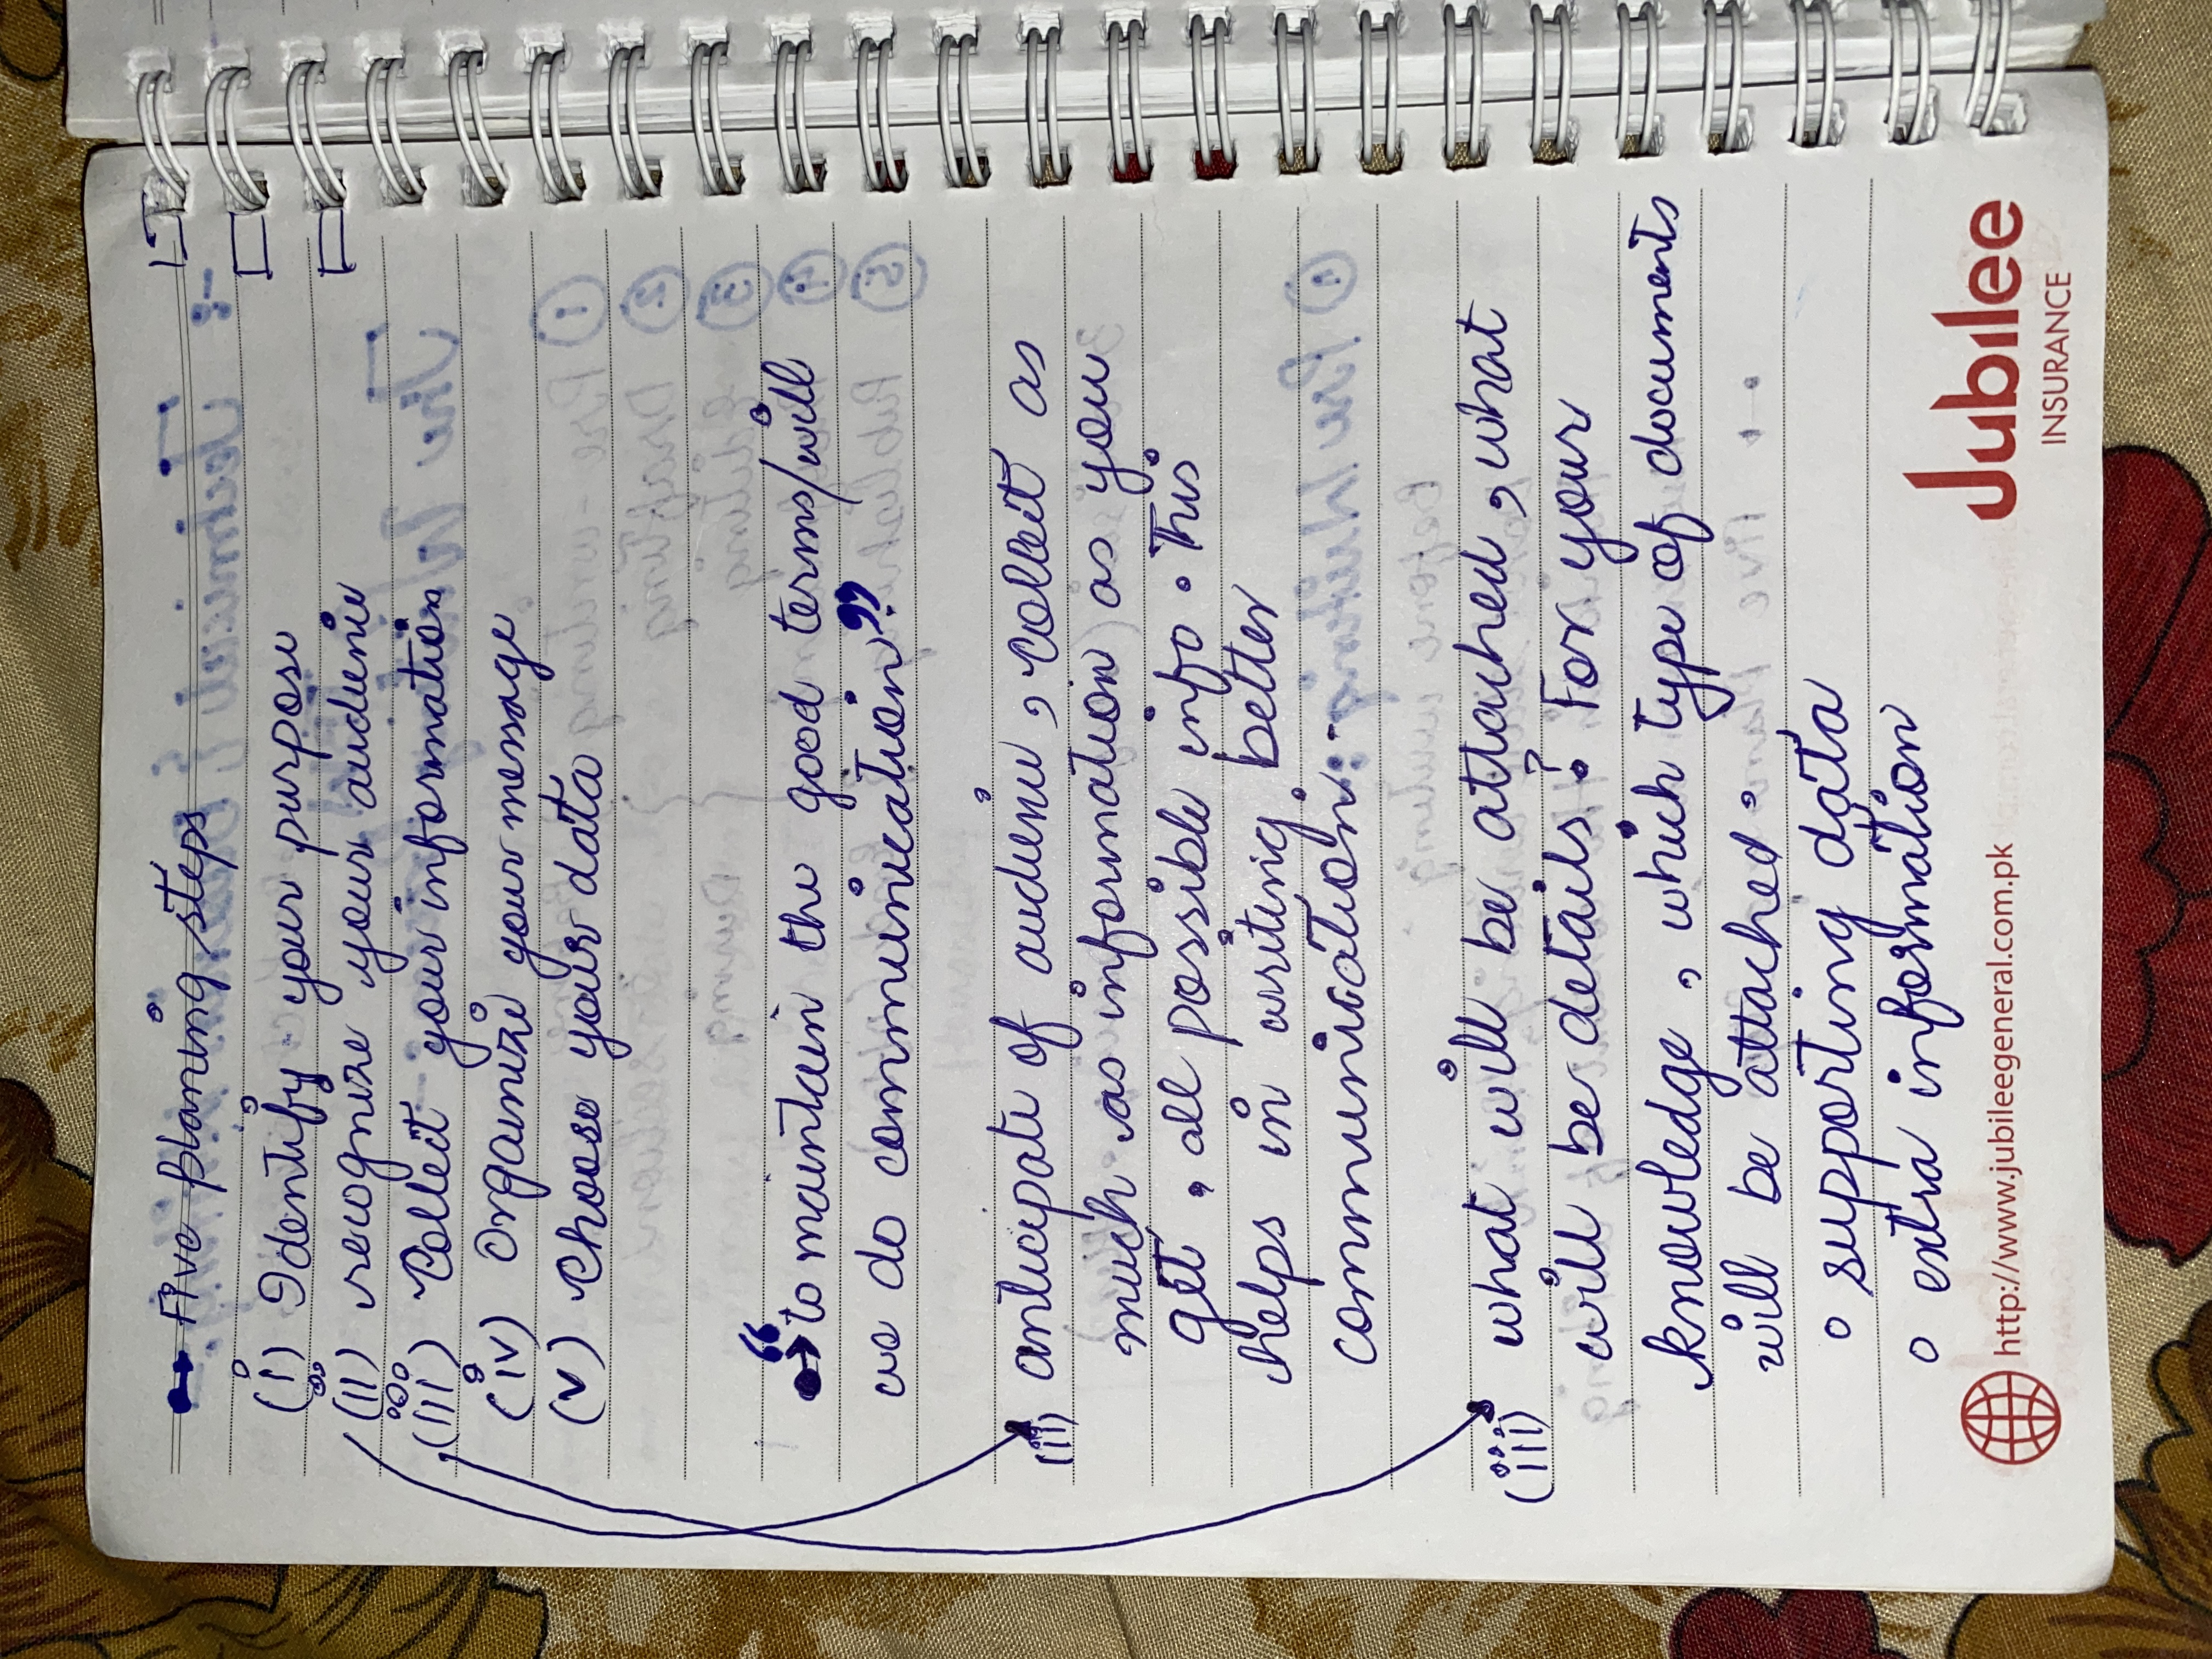 Five planing steps
(i) Identify your purpose
(ii) recognize your audience
(iii) Collect your information
(iv) Organize your message
(v) Choose your data
“→ to maintain the good terms/will
we do communication”.
(ii) anticipate of audience, collect as
much as information as you
get, all possible info. This
helps in writing better
communication.
(iii) what will be attached, what
will be details? For your
knowledge, which type of documents
will be attached.
o supporting data
o extra information
http://www.jubileegeneral.com.pk
Jubilee
INSURANCE